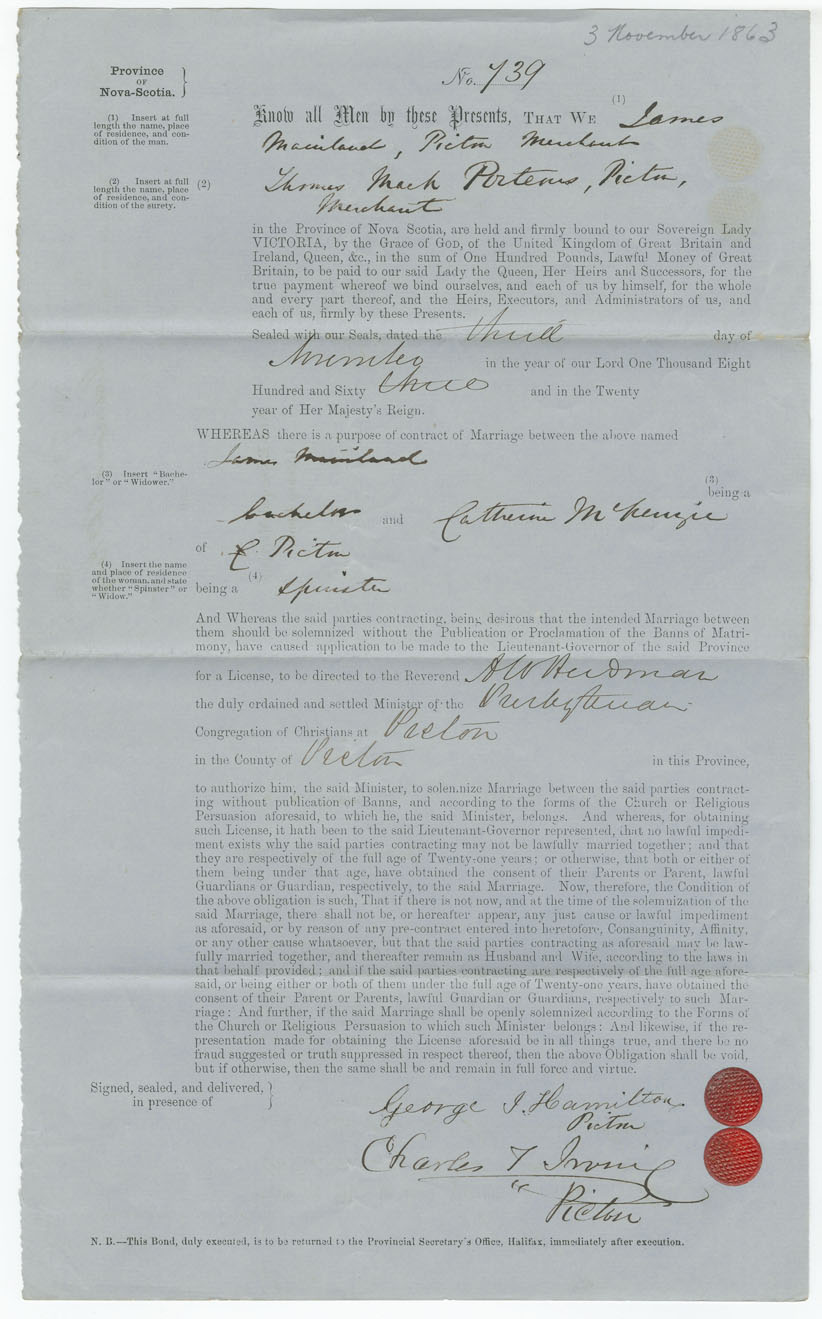 3 November 1863
Province
OF
Nova-Scotia.
No. 739
(1) Insert at full
length the name, place
of residence, and con-
dition of the man.
Know all Men by these Presents, THAT WE (1) James
Mainland, Picton Merchant
(2) Insert at full
length the name, place
of residence, and con-
dition of the surety.
(2) Thomas Mack Porteous, Picton,
Merchant
in the Province of Nova Scotia, are held and firmly bound to our Sovereign Lady
VICTORIA, by the Grace of GOD, of the United Kingdom of Great Britain and
Ireland, Queen, &c., in the sum of One Hundred Pounds, Lawful Money of Great
Britain, to be paid to our said Lady the Queen, Her Heirs and Successors, for the
true payment whereof we bind ourselves, and each of us by himself, for the whole
and every part thereof, and the Heirs, Executors, and Administrators of us, and
each of us, firmly by these Presents.
Sealed with our Seals, dated the third day of
November in the year of our Lord One Thousand Eight
Hundred and Sixty three and in the Twenty
year of Her Majesty's Reign.
WHEREAS there is a purpose of contract of Marriage between the above named
James Mainland
(3) Insert "Bache-
lor" or "Widower."
(3)
being a
bachelor and Catherine McKenzie
of Picton
(4) Insert the name
and place of residence
of the woman, and state
whether "Spinster" or
"Widow."
being a (4) Spinster
And Whereas the said parties contracting, being desirous that the intended Marriage between
them should be solemnized without the Publication or Proclamation of the Banns of Matri-
mony, have caused application to be made to the Lieutenant-Governor of the said Province
for a License, to be directed to the Reverend A W Herdman
the duly ordained and settled Minister of the Presbyterian
Congregation of Christians at Picton
in the County of Picton in this Province,
to authorize him, the said Minister, to solemnize Marriage between the said parties contract-
ing without publication of Banns, and according to the forms of the Church or Religious
Persuasion aforesaid, to which he, the said Minister, belongs. And whereas, for obtaining
such License, it hath been to the said Lieutenant-Governor represented, that no lawful impedi-
ment exists why the said parties contracting may not be lawfully married together; and that
they are respectively of the full age of Twenty-one years; or otherwise, that both or either of
them being under that age, have obtained the consent of their Parents or Parent, lawful
Guardians or Guardian, respectively, to the said Marriage. Now, therefore, the Condition of
the above obligation is such, That if there is not now, and at the time of the solemnization of the
said Marriage, there shall not be, or hereafter appear, any just cause or lawful impediment
as aforesaid, or by reason of any pre-contract entered into heretofore, Consanguinity, Affinity,
or any other cause whatsoever, but that the said parties contracting as aforesaid may be law-
fully married together, and thereafter remain as Husband and Wife, according to the laws in
that behalf provided; and if the said parties contracting are respectively of the full age afore-
said, or being either or both of them under the full age of Twenty-one years, have obtained the
consent of their Parent or Parents, lawful Guardian or Guardians, respectively to such Mar-
riage: And further, if the said Marriage shall be openly solemnized according to the Forms of
the Church or Religious Persuasion to which such Minister belongs: And likewise, if the re-
presentation made for obtaining the License aforesaid be in all things true, and there be no
fraud suggested or truth suppressed in respect thereof, then the above Obligation shall be void,
but if otherwise, then the same shall be and remain in full force and virtue.
Signed, sealed, and delivered,
in presence of
George J. Hamilton
Picton
Charles T Irving
" Picton
N. B.—This Bond, duly executed, is to be returned to the Provincial Secretary's Office, Halifax, immediately after execution.